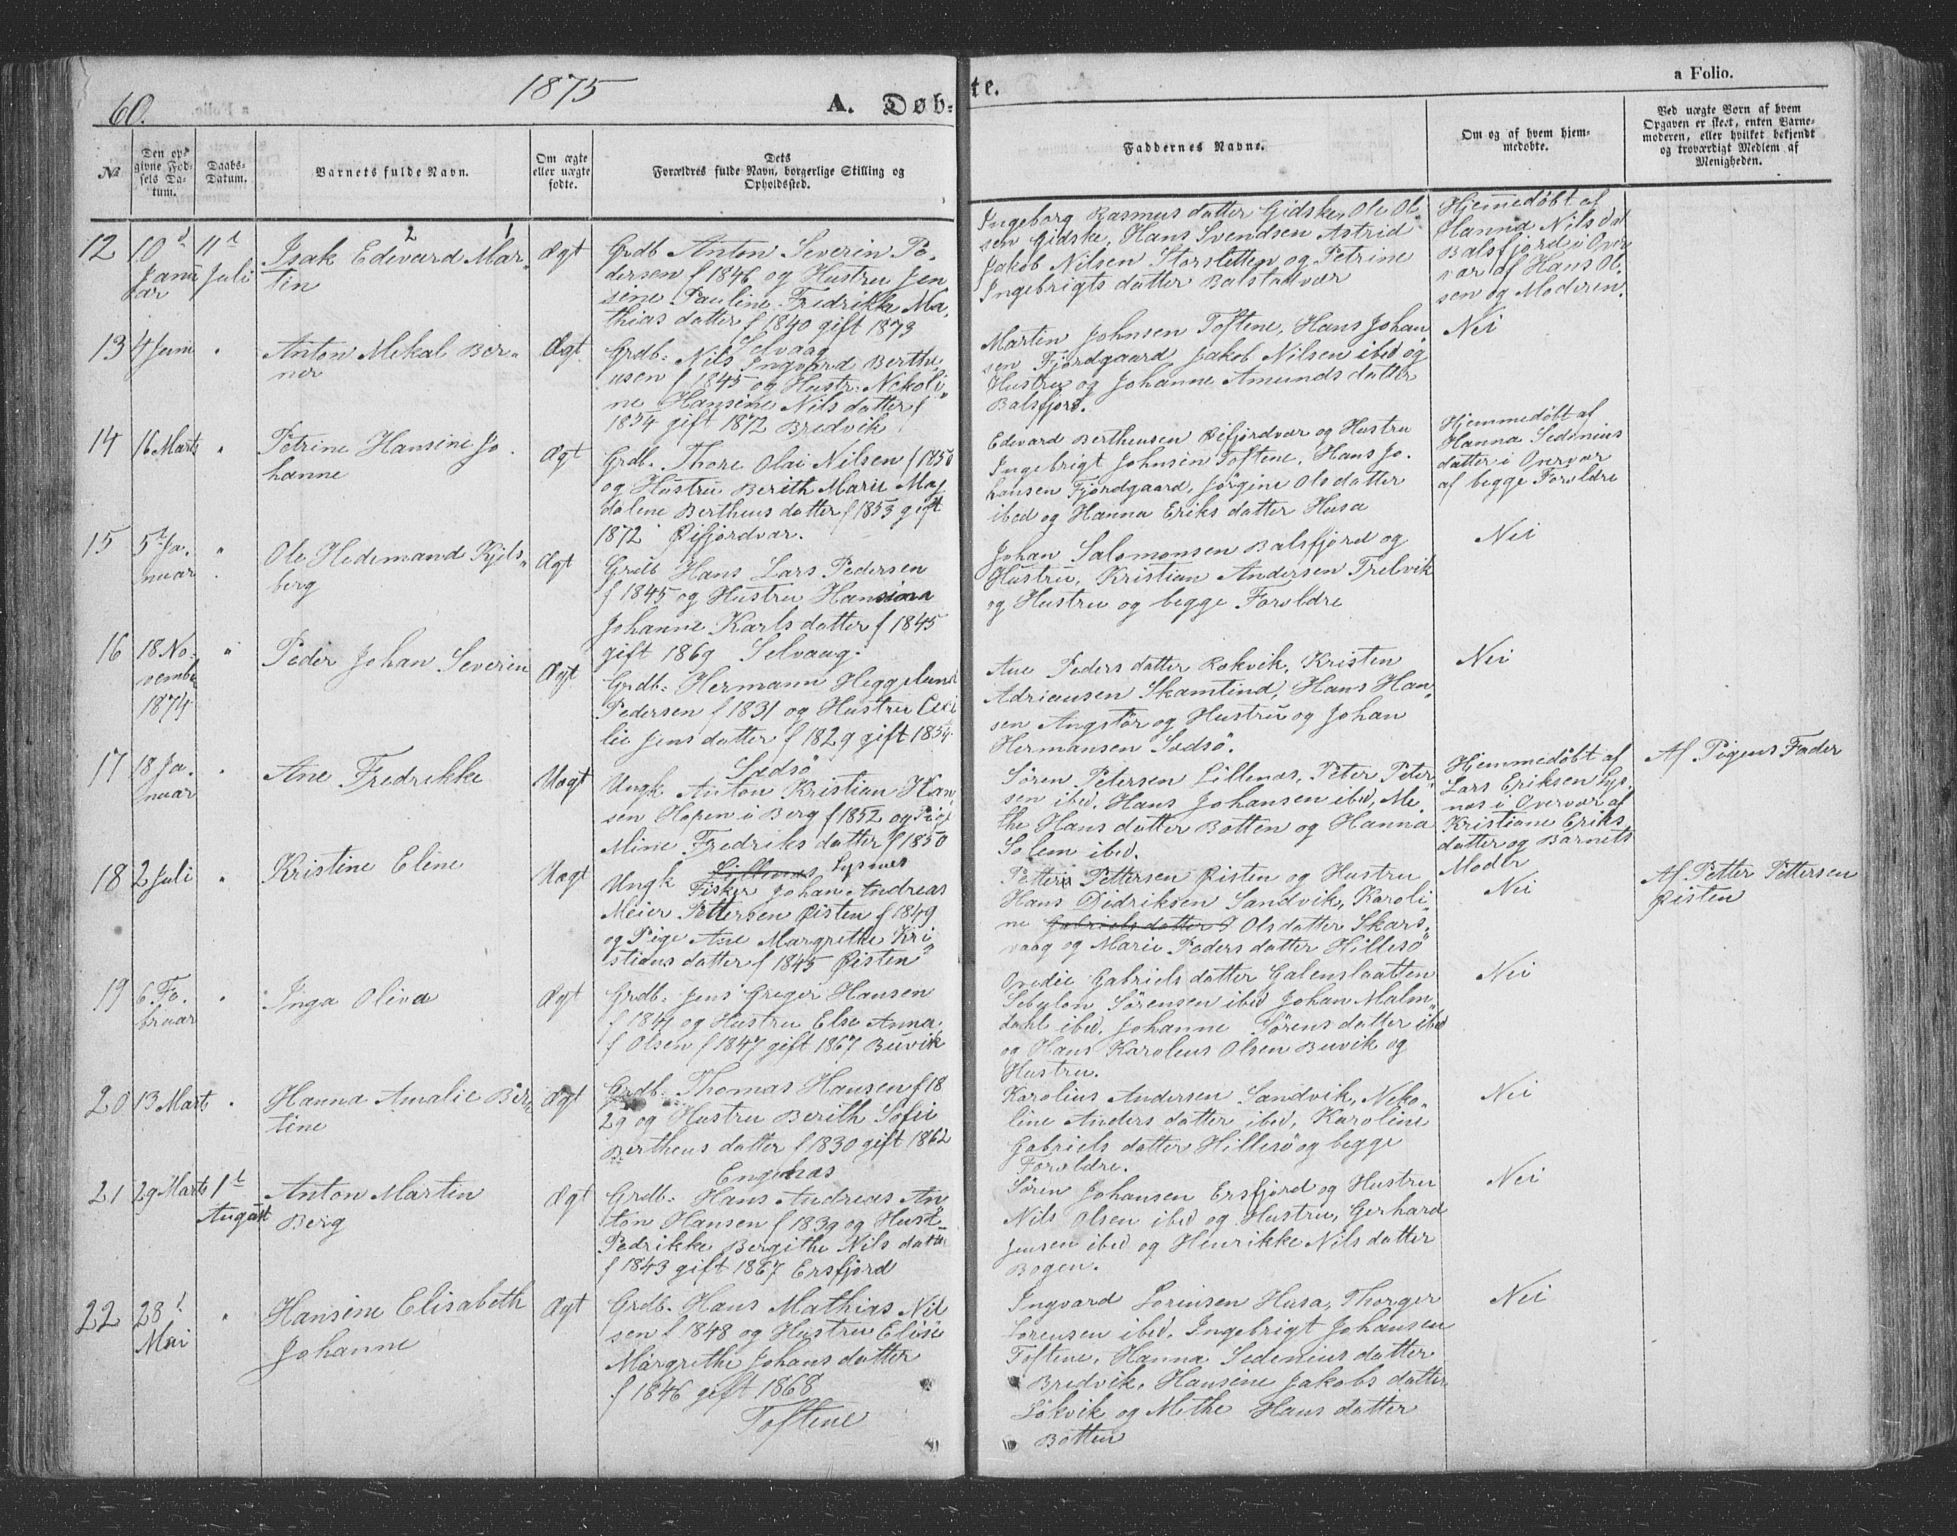 60.
1875
A. Døb-
te.
a Folio.
№
Den op-
givne Fød-
sels Da-
tum.
Daabs-
Datum.
Barnets fulde Navn.
Om ægte
eller uægte
fødte.
Dets
Forældres fulde Navn, borgerlige Stilling og
Opholdssted.
Faddernes Navne.
Om og af hvem hjem-
medøbte.
Ved uægte Børn af hvem
Opgaven er skeet, enten Barne-
moderen, eller hvilket bekjendt
og troværdigt Medlem af
Menigheden.
12
10d
Janu
ar
11t
Juli
2 1
Isak Edevard Mar-
tin
Ægt
Grdb Anton Severin Pe-
dersen f 1846 og Hustru Jen
sine Pauline Fredrikke Ma-
thias datter f 1840 gift 1873
Selvaag
Ingeborg Rasmus datter Gidske, Ole Ol-
sen Gidske, Hans Svendsen Astrid
Jakob Nilsen Storsletten og Petrine
Ingebrigts datter Balstadvær
Hjemmedøbt af
Hanna Nils dat
Balsfjord i Over
vær af Hans Ol-
sen og Moderen.
13
4 Juni
"
Anton Mikal Ber-
ner
Ægt
Grdb: Nils Ingvard Berthe-
usen f 1845 og Hustr: Nekoli
ne Hansine Nils datter f
1854 gift 1872 Bredvik
Martin Johnsen Toftene, Hans Johan
sen Fjordgaard Jakob Nilsen ibid og
Hustru og Johanne Amunds datter
Balsfjord.
Nei
14
16 Marts
"
Petrine Hansine Jo-
hanne
Ægt
Grdb. Thore Olai Nilsen f 1850
og Hustru Berith Marie Mag
dalene Bertheus datter f 1853 gift
1872 Øifjordvær.
Edevard Bertheusen Øifjordvær og Hustru
Ingebrigt Johnsen Toftene, Hans Jo-
hansen Fjordgaard, Jørgine Ols datter
ibid og Hanna Eriks datter Husa
Hjemmedøbt af
Hanna Sedenius
datter i Overvær
af begge Forældre
15
5t Ja-
nuar
"
Ole Hedemand Kjels-
berg
Ægt
Grdb Hans Lars Pedersen
f 1845 og Hustru Hansina
Johanne Karls datter f 1845
gift 1869 Selvaag.
Johan Salomonsen Balsfjord og
Hustru, Kristian Andersen Trelvik
og Hustru og begge Forældre
Nei
16
18 No-
vembr
1874
"
Peder Johan Severin
Ægt
Grdb: Hermann Heggelund
Pedersen f 1831 og Hustru Ceci
lie Jens datter f 1829 gift 1854
Sødsø
Ane Peders datter Rokvik, Kristen
Adriansen Skamtind, Hans Han-
sen Angstør og Hustru og Johan
Hermansen Sødsø.
Nei
17
18 Ja-
nuar
"
Ane Fredrikke
Uægt
Ungk. Anton Kristian Han-
sen Hopen i Berg f 1852 og Pige
Mine Fredriks datter f 1850
Lysnes
Søren Petersen Lillenæs, Peter Peter-
sen ibid, Hans Johansen ibid, Me-
the Hans datter Botten og Hanna
Solem ibid.
Hjemmedøbt af
Lars Eriksen Lys-
nes i Overvær af
Kristiane Eriks
datter og Barnets
Moder
Af Pigens Fader
18
2 Juli
"
Kristine Eline
Uægt
Ungk Fisker Johan Andreas
Meier Pettersen Øisten f 1849
og Pige Ane Margrethe Kri-
stians datter f 1845 Øisten
Petter Pettersen Øisten og Hustru
Hans Didriksen Sandvik, Karoli-
ne Gabriels datter Ols datter Skars-
vaag og Marie Peders datter Hillesø
Nei
Af Petter Pettersen
Øisten
19
6 Fe-
bruar
"
Inga Oliva
Ægt
Grdb: Jens Greger Hansen
f 1841 og Hustru Else Anna
f Olsen f 1847 gift 1867 Buvik
Ovedie Gabriels datter Galenslaatten
Sebylon Sørensen ibid Johan Malm-
dahl ibid, Johanne Sørens datter ibid
og Hans Karolius Olsen Buvik og
Hustru.
Nei
20
13 Marts
"
Hanna Amalie Ber-
tine
Ægt
Grdb. Thomas Hansen f 18
29 og Hustru Berith Sofie
Bertheus datter f 1830 gift 1862
Engenæs
Karolius Andersen Sandvik, Neko-
line Anders datter ibid, Karoline
Gabriels datter Hillesø og begge
Forældre.
Nei
21
29 Marts
1t
August
Anton Martin
Berg
Ægt
Grdb: Hans Andreas An-
ton Hansen f 1839 og Hust-
Pedrikke Bergithe Nils datter
f 1843 gift 1867 Ersfjord
Søren Johansen Ersfjord og Hustru
Nils Olsen ibid og Hustru, Gerhard
Jensen ibid og Henrikke Nils datter
Bogen.
Nei
22
28d
Mai
"
Hansine Elisabeth
Johanne
Ægt
Grdb. Hans Mathias Nil
sen f 1848 og Hustru Elise
Margrethe Johans datter
f 1846 gift 1868
Toftene
Ingvard Lorensen Husa, Thorger
Lorensen ibid. Ingebrigt Johansen
Toftene, Hanna Sedenius datter
Bredvik, Hansine Jakobs datter
Løkvik og Methe Hans datter
Botten
Nei